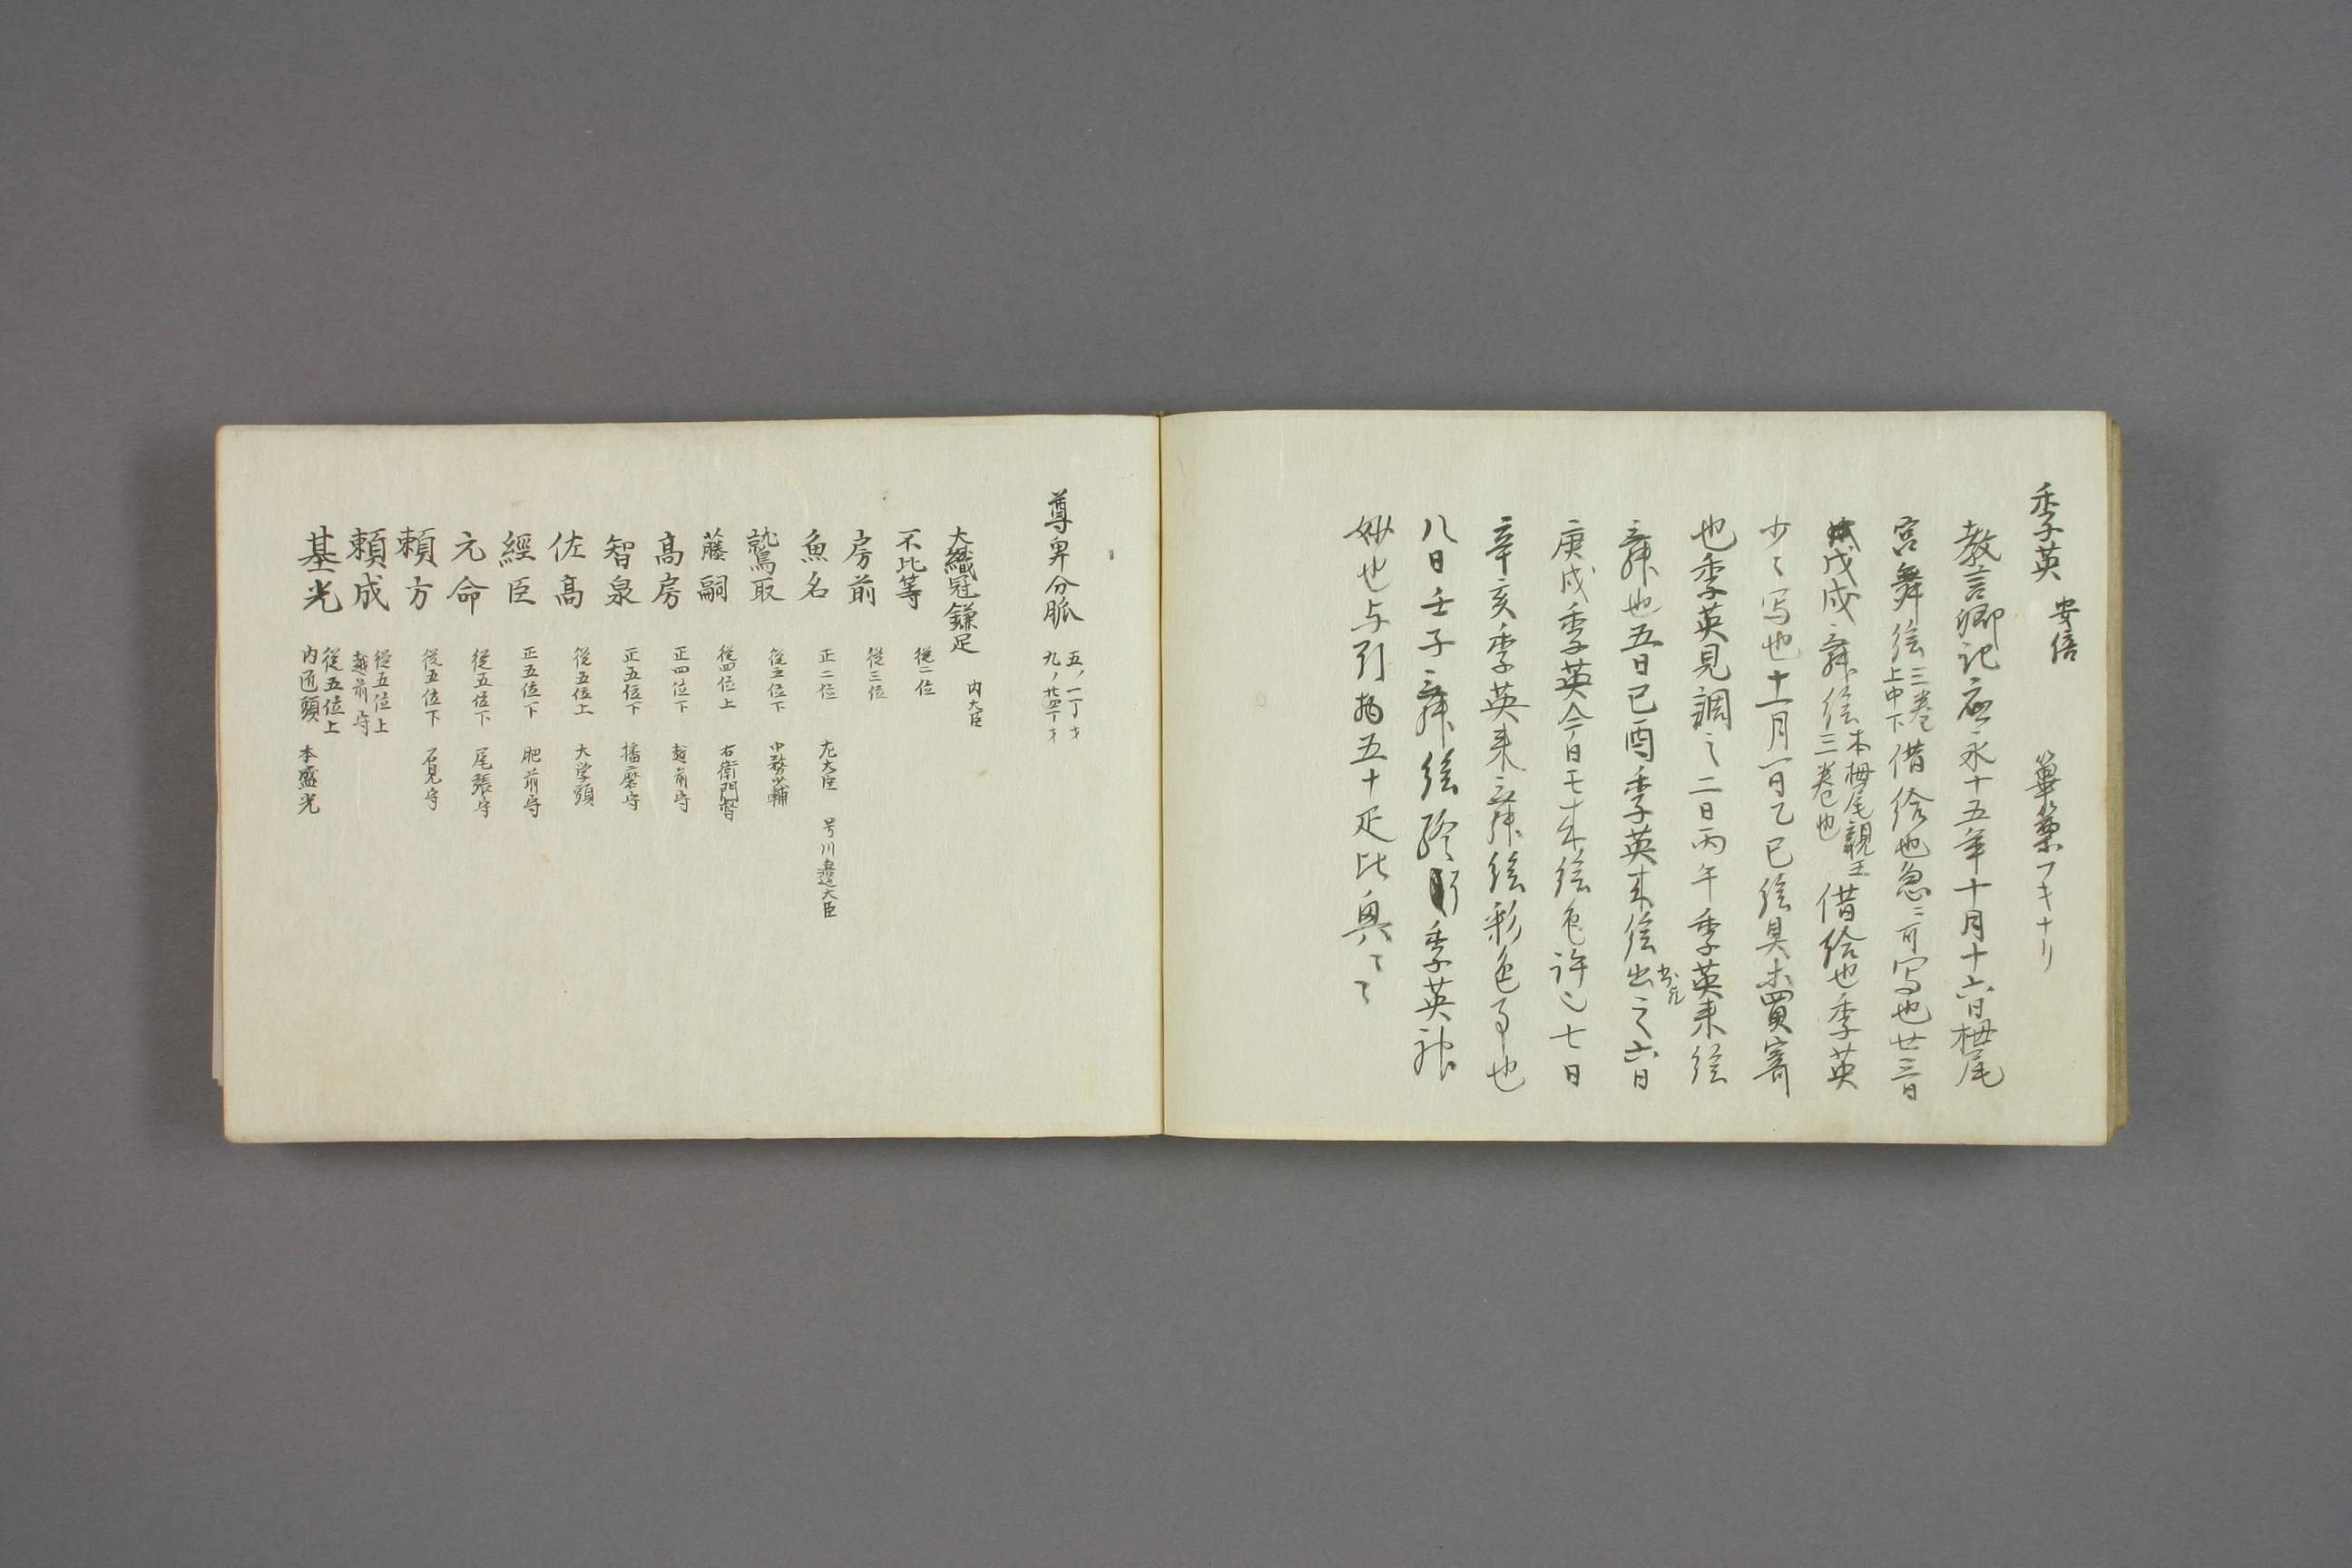 季英 安倍 篳篥フキナリ
教言卿記応永十五年十月十六日栂尾
宮舞絵三巻上中下借給也急々可写也廿三日
戊戌舞絵本栂尾親王三巻也借給也季英
少々写也十一月一日乙巳絵具木買寄
也季英見調之二日丙午季英来絵
舞也五日己酉季英来絵出之六日
庚戌季英今日モ来絵色許也七日
辛亥季英来舞絵彩色了也
八日壬子舞絵終季英
妙也与引物五十疋比興々々
尊卑分脈 五ノ一丁オ 九ノ廿四丁オ
大織冠鎌足 内大臣
不比等 従二位
房前 従三位
魚名 正二位 左大臣 号川邊大臣
鷲取 従五位下 中務少輔
藤嗣 従四位上 右衛門督
高房 正四位下 越前守
智泉 正五位下 播磨守
佐高 従五位上 大学頭
經臣 正五位下 肥前守
元命 従五位下 尾張守
頼方 従五位下 石見守
頼成 従五位上 越前守
基光 従五位上 内匠頭 本盛光